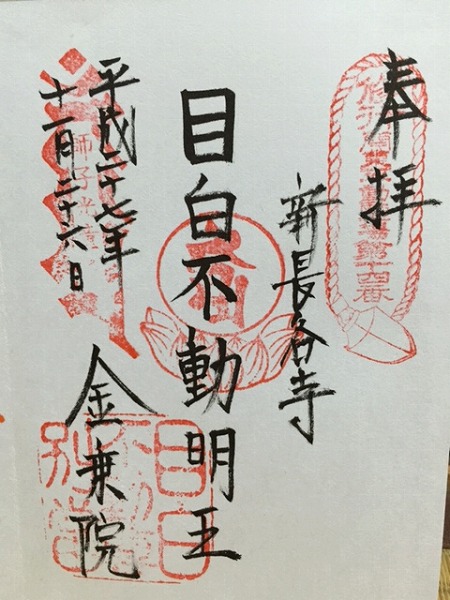 奉拝
新長谷寺
目白不動明王
平成二十七年
十一月二十六日
金乗院